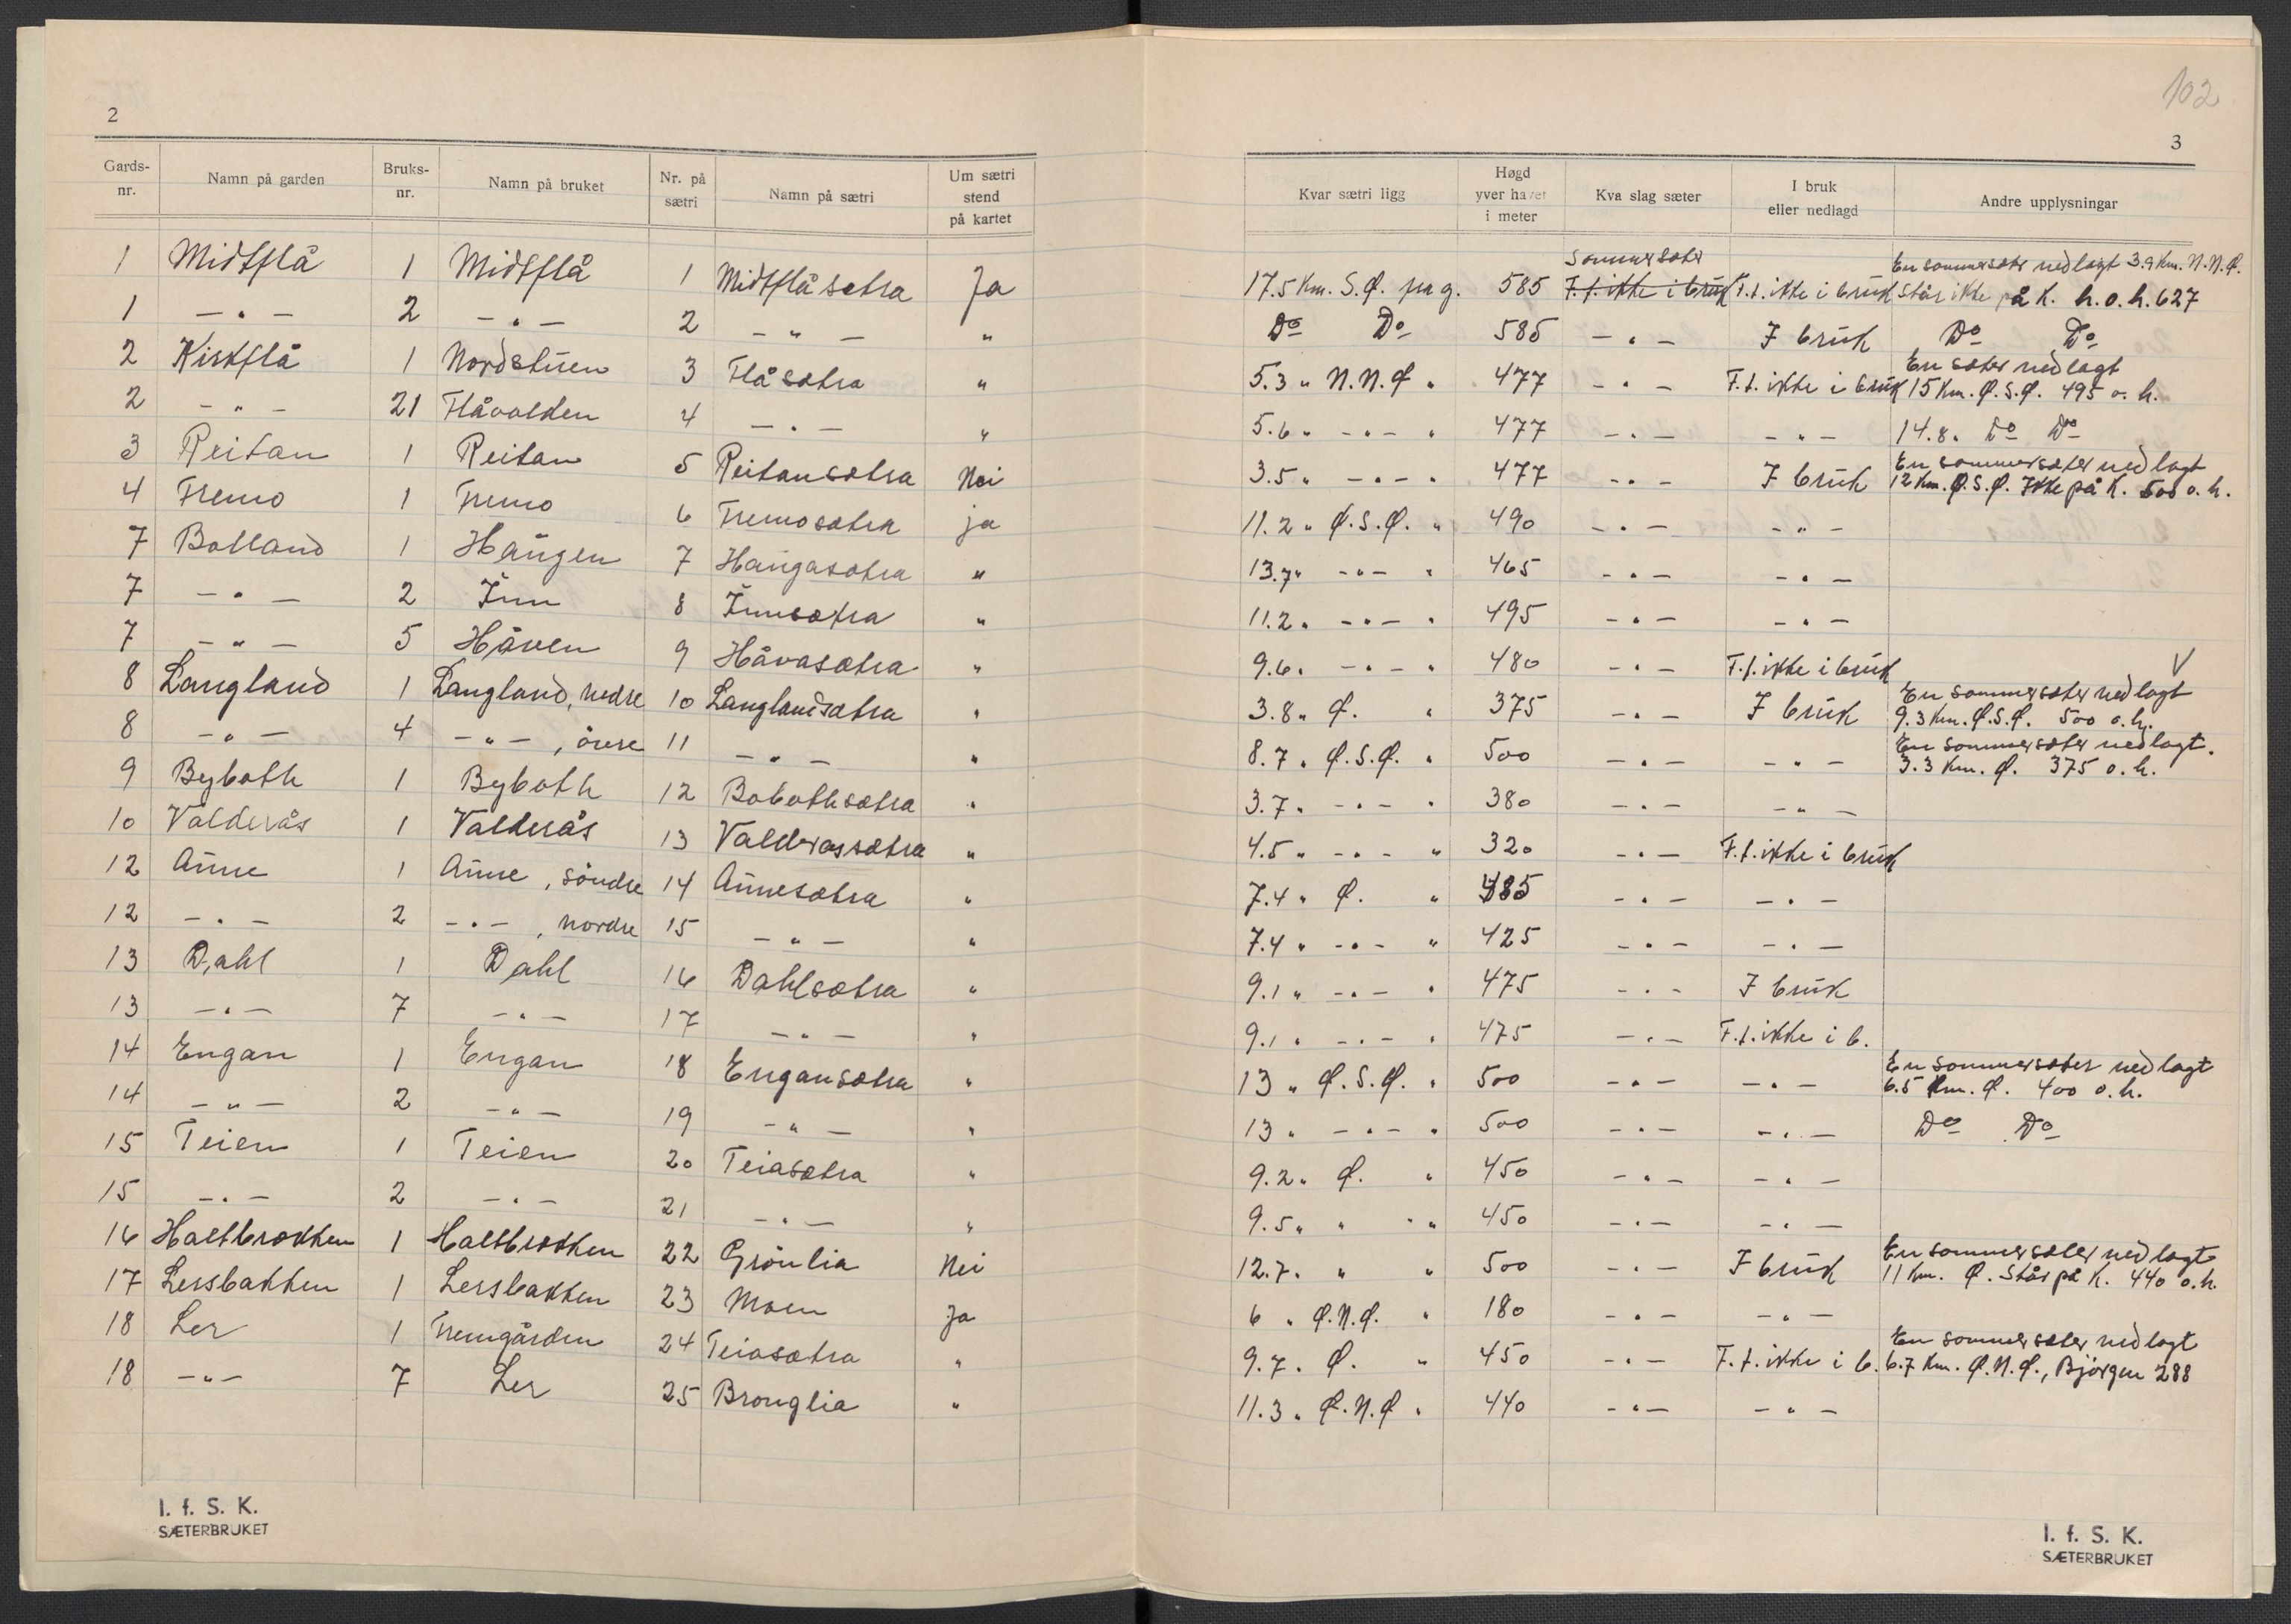 102
2
3
Gards-nr. | Namn på garden | Bruks-nr. | Namn på bruket | Nr. på sætri | Namn på sætri | Um sætri stend på kartet | Kvar sætri ligg | Høgd yver havet i meter | Kva slag sæter | I bruk eller nedlagd | Andre upplysningar
1 | Midtflå | 1 | Midtflå | 1 | Midtflåsetra | Ja | 17.5 Km. S.Ø. for g. | 585 | Sommersæter F.t. ikke i bruk | F.t. ikke i bruk | En sommersæter nedlagt 3.9 Km. N.N.Ø. Står ikke på K. h.o.h. 627
1 | -"- | 2 | -"- | 2 | -"- | " | Do Do | 585 | -"- | I bruk | Do Do
2 | Kirkflå | 1 | Nordstuen | 3 | Flåsætra | " | 5.3 " N.N.Ø " | 477 | -"- | F.t. ikke i bruk | En sæter nedlagt 15 Km. Ø.S.Ø. 495 o. h.
2 | -"- | 21 | Flåvolden | 4 | -"- | " | 5.6 " -"- " | 477 | -"- | -"- | 14.8 " Do Do
3 | Reitan | 1 | Reitan | 5 | Reitansætra | Nei | 3.5 " -"- " | 477 | -"- | I bruk | En sommersæter nedlagt 12 Km. Ø.S.Ø. Ikke på K. 500 o. h.
4 | Fremo | 1 | Fremo | 6 | Fremosætra | ja | 11.2 " Ø.S.Ø. " | 490 | -"- | -"-
7 | Bolland | 1 | Haugen | 7 | Haugasætra | " | 13.7 " -"- " | 465 | -"- | -"-
7 | -"- | 2 | Inn | 8 | Innsætra | " | 11.2 " -"- " | 495 | -"- | -"-
7 | -"- | 5 | Håven | 9 | Håvasætra | " | 9.6 " -"- " | 480 | -"- | F.t. ikke i bruk | V
8 | Langland | 1 | Langland, nedre | 10 | Langlandsætra | " | 3.8 " Ø. " | 375 | -"- | I bruk | En sommersæter nedlagt 9.3 Km. Ø.S.Ø. 500 o. h.
8 | -"- | 4 | -"-, övre | 11 | -"- | " | 8.7 " Ø.S.Ø. " | 500 | -"- | -"- | En sommersæter nedlagt. 3.3 Km. Ø. 375 o. h.
9 | Byboth | 1 | Byboth | 12 | Bobothsætra | " | 3.7 " -"- " | 380 | -"- | -"-
10 | Valderås | 1 | Valderås | 13 | Valderassætra | " | 4.5 " -"- " | 320 | -"- | F.t. ikke i bruk
12 | Aune | 1 | Aune, söndre | 14 | Aunesætra | " | 7.4 " Ø. " | 485 | -"- | -"-
12 | -"- | 2 | -"-, nordre | 15 | -"- | " | 7.4 " -"- " | 425 | -"- | -"-
13 | Dahl | 1 | Dahl | 16 | Dahlsætra | " | 9.1 " -"- " | 475 | -"- | I bruk
13 | -"- | 7 | -"- | 17 | -"- | " | 9.1 " -"- " | 475 | -"- | F.t. ikke i b.
14 | Engan | 1 | Engan | 18 | Engansætra | " | 13 " Ø.S.Ø. " | 500 | -"- | -"- | En sommersæter nedlagt 6.5 Km. Ø. 400 o. h.
14 | -"- | 2 | -"- | 19 | -"- | " | 13 " -"- " | 500 | -"- | -"- | Do Do
15 | Teien | 1 | Teien | 20 | Teiasætra | " | 9.2 " Ø. " | 450 | -"- | -"-
15 | -"- | 2 | -"- | 21 | -"- | " | 9.5 " " " | 450 | -"- | -"-
16 | Haltbrækken | 1 | Haltbrækken | 22 | Grönlia | Nei | 12.7 " " " | 500 | -"- | I bruk | En sommersæter nedlagt 11 Km. Ø. Står på K. 440 o. h.
17 | Lersbakken | 1 | Lersbakken | 23 | Moen | Ja | 6 " Ø.N.Ø. " | 180 | -"- | -"-
18 | Ler | 1 | Fremgården | 24 | Teiasætra | " | 9.7 " Ø. " | 450 | -"- | F.t. ikke i b. | En sommersæter nedlagt 6.7 Km. Ø.N.Ø., Björgen 288
18 | -"- | 7 | Ler | 25 | Bronglia | " | 11.3 " Ø.N.Ø " | 440 | -"- | -"-
I. f. S. K.
SÆTERBRUKET
I. f. S. K.
SÆTERBRUKET